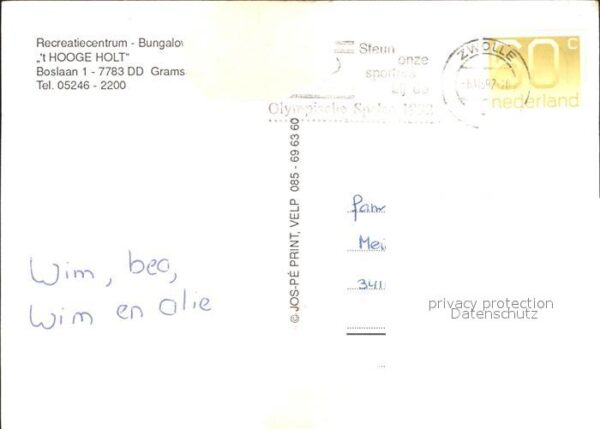 Recreatiecentrum - Bungalow
„'t HOOGE HOLT"
Boslaan 1 - 7783 DD Grams
Tel. 05246 - 2200
Steun
onze
sporters
bij de
Olympische Spelen 1992
ZWOLLE
60 c
nederland
© JOS-PÉ PRINT, VELP 085 - 69 63 60
fam
Mei
341
Wim, bea,
Wim en alie
privacy protection
Datenschutz